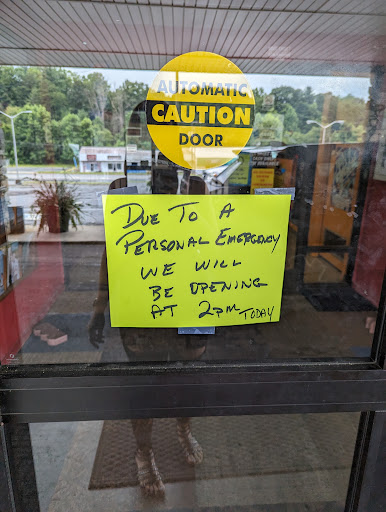 AUTOMATIC
CAUTION
DOOR
DUE TO A
PERSONAL EMERGENCY
WE WILL
BE OPENING
AT 2PM TODAY